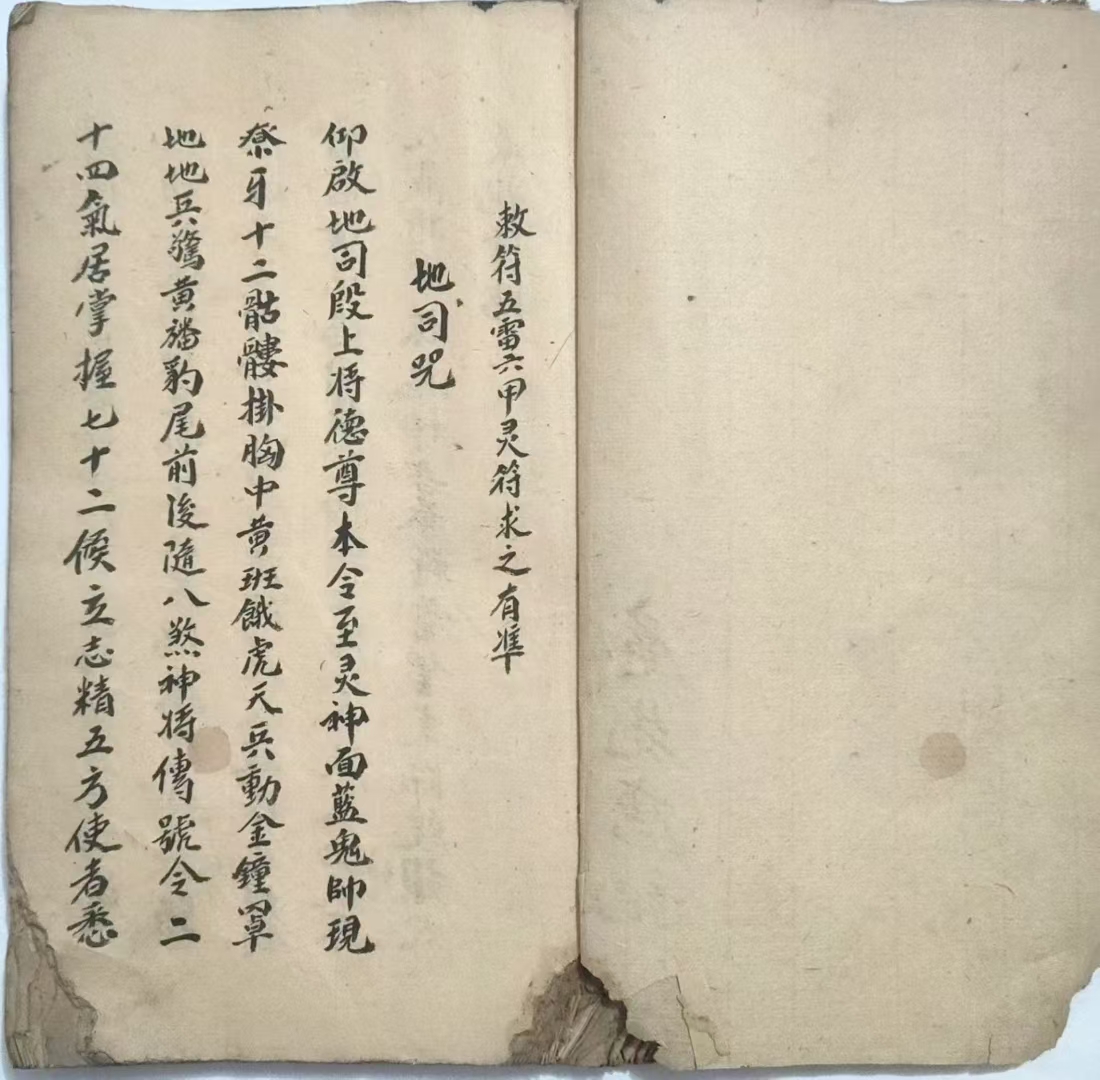 敕符五雷六甲灵符求之有準
地司咒
仰啟地司段上将德尊本令至灵神面藍鬼帥現
獠牙十二骷髏掛胸中黄班餓虎天兵動金鐘罩
地地兵驚黄旛豹尾前後隨八煞神将傳號令二
十四氣居掌握七十二候立志精五方使者悉